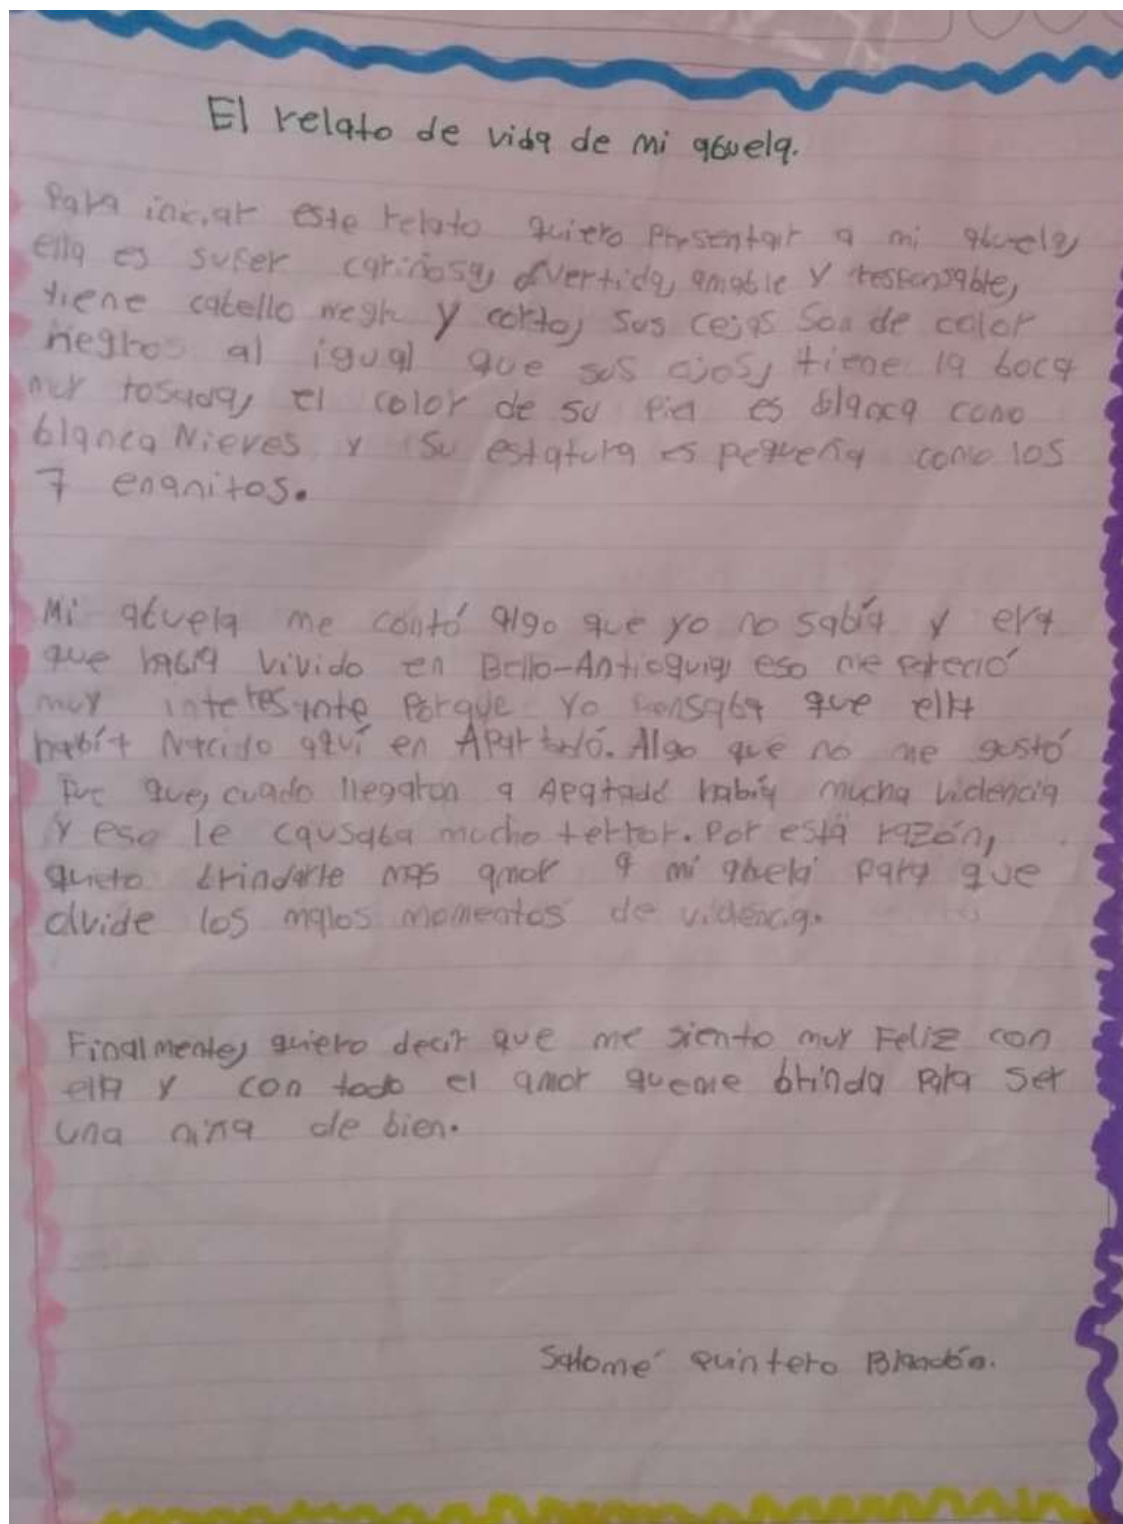 El relato de vida de mi abuela.
Para iniciar este relato quiero presentar a mi abuela,
ella es super cariñosa, divertida, amable y responsable,
tiene cabello negro y corto, sus cejas son de color
negros al igual que sus ojos, tiene la boca
muy rosada, el color de su piel es blanca como
blanca Nieves y su estatura es pequeña como los
7 enanitos.
Mi abuela me contó algo que yo no sabía y era
que había vivido en Bello-Antioquia, eso me pareció
muy interesante porque yo pensaba que ella
había Nacido aquí en Apartadó. Algo que no me gustó
fue que, cuado llegaron a Apatadó había mucha violencia
y eso le causaba mucho terror. Por está razón,
quiero brindarle mas amor a mi abuela para que
olvide los malos momentos de violencia.
Finalmente, quiero decir que me siento muy Feliz con
ella y con todo el amor queme brinda para ser
una niña de bien.
Salomé Quintero Blandón.